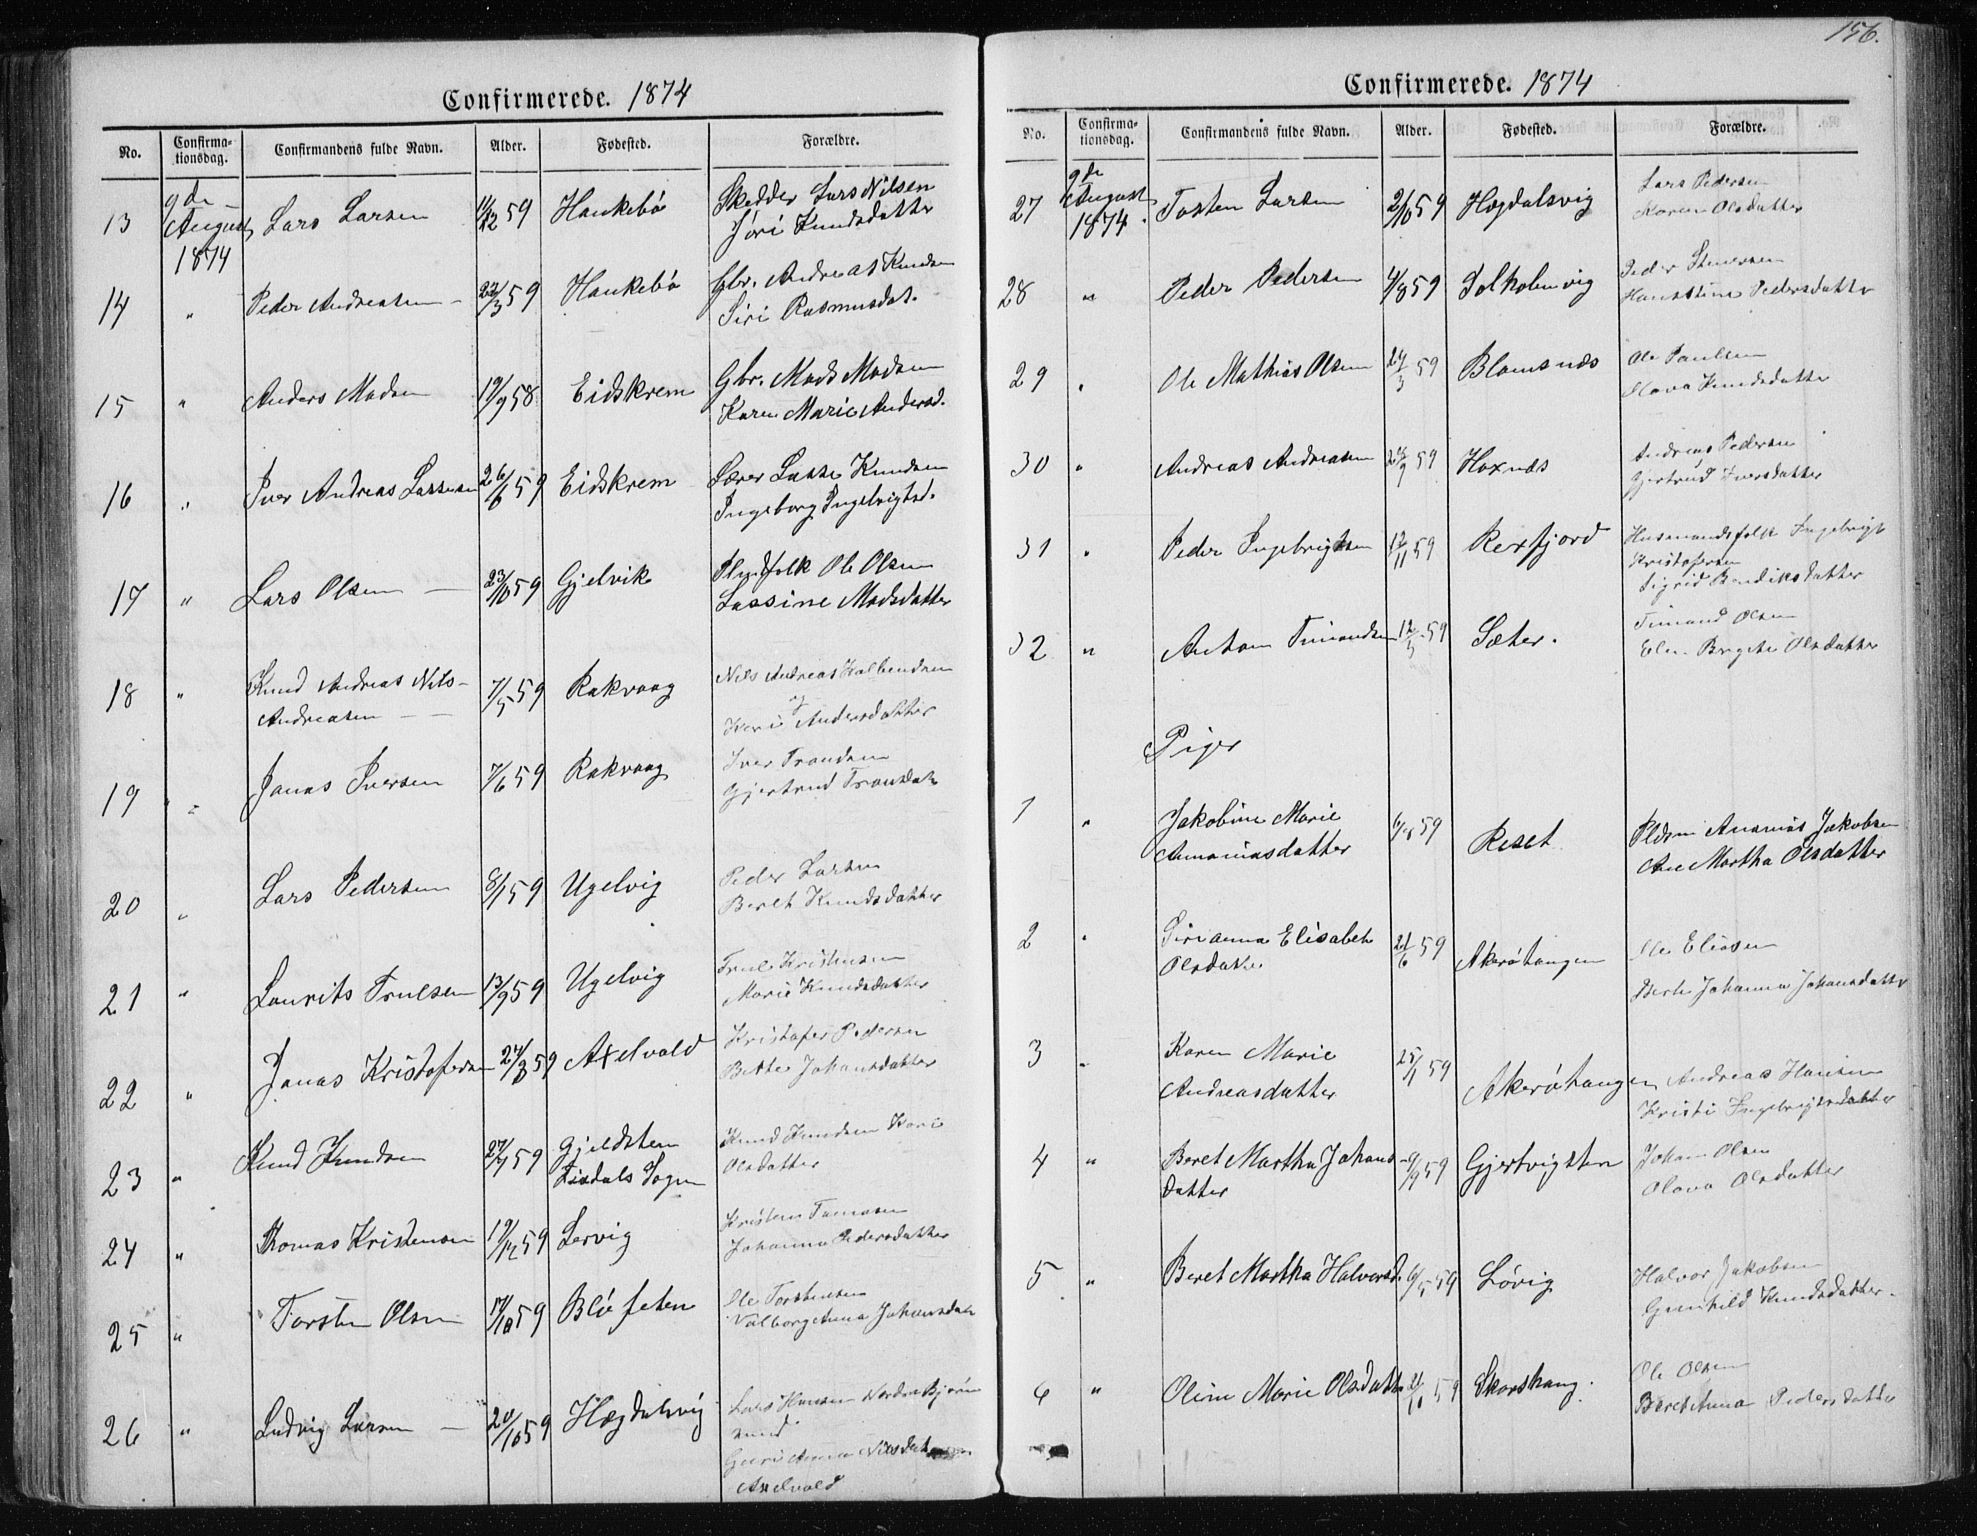 Confirmerede. 1874
No. Confirma-tionsdag. Confirmandens fulde Navn. Alder. Fødested. Forældre.
13 9de August 1874 Lars Larsen 11/12 59 Haukebø Skedder Lars Nilsen
Jøri Knudsdatter
14 " Peder Andreasen 22/3 59 Haukebø Gbr. Andreas Knudsen
Siri Rasmusdat.
15 " Anders Madsen 19/9 58 Eidskrem Gbr. Mads Madsen
Karen Marie Andersd.
16 " Iver Andreas Lassesen 26/6 59 Eidskrem Lærer Lasse Knudsen
Ingeborg Ingebrigtsd.
17 " Lars Olsen 23/10 59 Gjelvik Plsfolk Ole Olsen
Lassine Madsdatter
18 " Knud Andreas Nils-
Andreasen 7/5 59 Rakvaag Nils Andreas Halbendsen
og
Kari Andersdatter
19 " Jonas Iversen 7/6 59 Rakvaag Iver Trondsen
Gjertrud Tronsdat
20 " Lars Pedersen 8/1 59 Ugelvig Peder Larsen
Beret Knudsdatter
21 " Laurits Trulsen 13/9 59 Ugelvig Trul Kristensen
Marie Knudsdatter
22 " Jonas Kristofersen 24/8 59 Axelvold Kristofer Pedersen
Bette Johansdatter
23 " Knud Knudsen 27/7 59 Gjeldsten
Sogn Knud Knudsen Kari
Olsdatter
24 " Thomas Kristensen 19/12 59 Lervig Kristen Tomasen
Johanna Pedersdatter
25 " Torsten Olsen 17/10 59 Bløfeten Ole Torstensen
Valborg Anna Johansdat
26 " Ludvig Larsen 20/10 59 Hægdalsvig Lars Hansen Nordre Bjørn
sund
Guri Anna Nilsdat
Axelvold
156.
Confirmerede. 1874
No. Confirma-tionsdag. Confirmandens fulde Navn. Alder. Fødested. Forældre.
27 9de August 1874. Tosten Larsen 2/10 59 Hægdalsvig Lars Pedersen
Karen Olsdatter
28 " Peder Pedersen 4/8 59 Solholmvig Peder Stenersen
Hanstine Pedersdatter
29 " Ole Mathias Olsen 24/3 59 Blomsnæs Ole Paulsen
Olava Knudsdatter
30 " Andreas Andreasen 59 Hoxnæs Andreas Pedersen
Gjertrud Iversdatter
31 " Peder Ingebrigtsen 12/11 59 Rexfjord Husmandsfolk Ingebrigt
Kristofersen
Sigrid Bendiksdatter
32 " Anton Timandsen 12/5 59 Sæter. Timand Olsen
Elen Brgite Olsdatter
Piger
1 " Jakobine Marie
Annaniasdatter 59 Reset Ananias Jakobsen
Ane Martha Olsdatter
2 " Sirianna Elisabet
Olsdatter 21/6 59 Akerøtangen Ole Eliasen
Berte Johanna Johansdatter
3 " Karen Marie
Andreasdatter 25/1 59 Akerøtangen Andreas Hansen
Kristi Ingebrigtsdatter
4 " Beret Martha Johans-
datter 9/9 59 Gjertvigsten Johan Olsen
Olava Olsdatter
5 " Beret Martha Halvorsd. 6/5 59 Løvig Halvor Jakobsen
Gunhild Knudsdatter.
6 " Oline Marie Olsdatter 59 Skarshaug. Ole Olsen
Beret Anna Pedersdatter